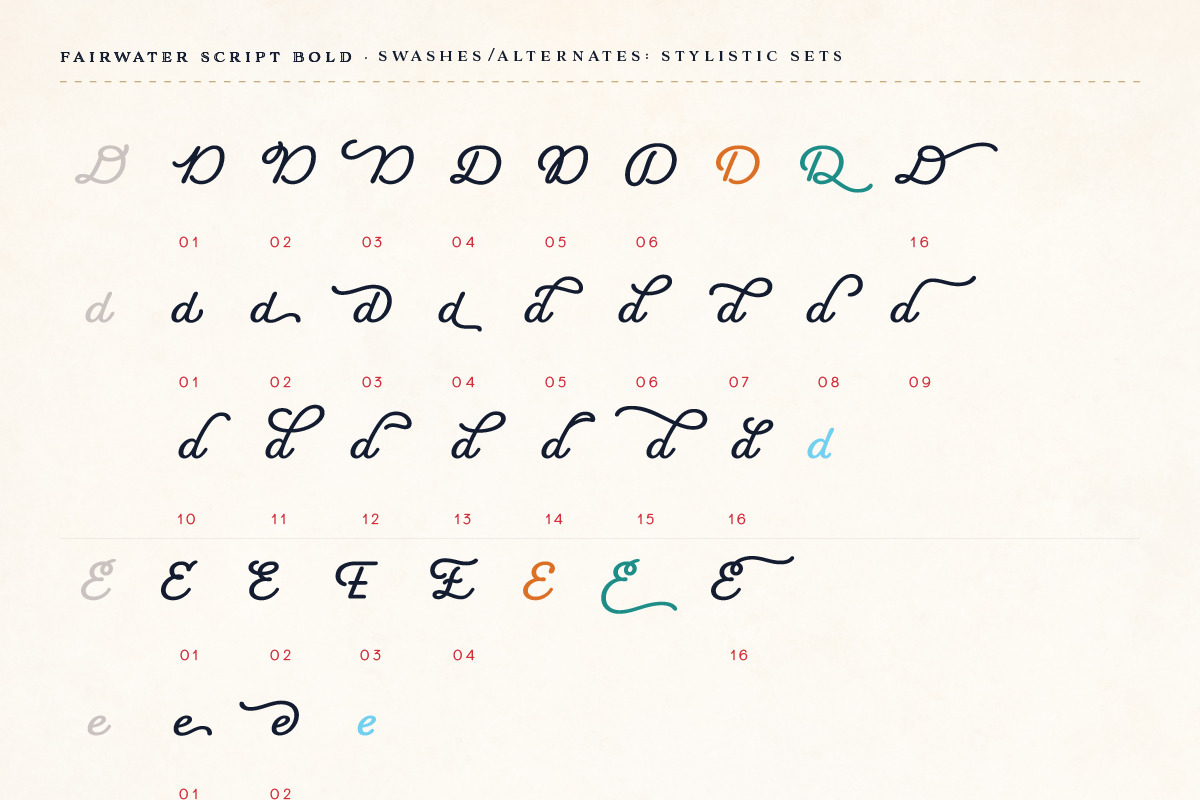 FAIRWATER SCRIPT BOLD · SWASHES/ALTERNATES: STYLISTIC SETS
D D D D D D D D D D
01 02 03 04 05 06 16
d d d d d d d d d d
01 02 03 04 05 06 07 08 09
d d d d d d d d
10 11 12 13 14 15 16
E E E E E E E E
01 02 03 04 16
e e e e
01 02